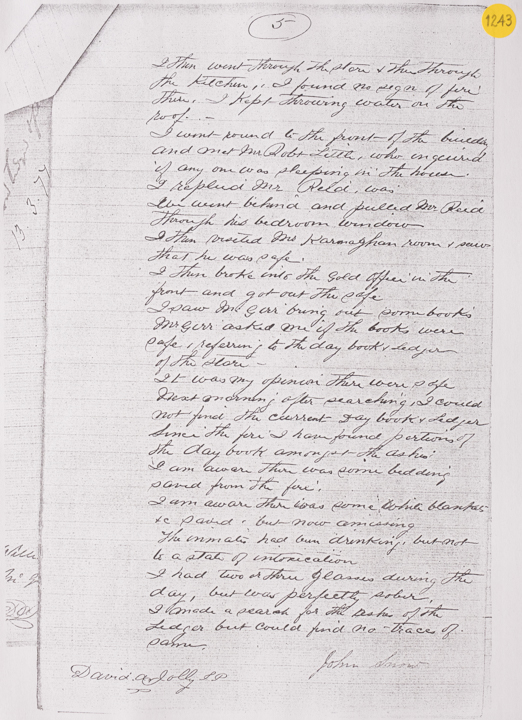 5
1243
I then went through the store & then through
the Kitchen, I found no sign of fire
there, - I Kept throwing water on the
roof. -
I went round to the front of the building
and met Mr Robt Little, who inquired
if any one was sleeping in the house.
I replied Mr Reid, was.
We went behind and pulled Mr Reid
through his bedroom window
I then visited Mrs Karnaghan room & saw
that he was safe.
I then broke into the Gold Office in the
front and got out the safe
I saw Mr Gerr bring out some books
Mr Gerr asked me if the books were
safe, referring to the day book & Ledger
of the store -
It was my opinion there were safe
Next morning after searching, I could
not find the current Day book & Ledger
Since the fire I have found portions of
the day book amongst the ashes.
I am aware there was some bedding
saved from the fire.
I am aware there was some White blankets
&c saved, but now amissing
The inmates had been drinking, but not
to a state of intoxication
I had two or three Glasses during the
day, but was perfectly sober,
I made a search for the ashes of the
Ledger but could find no traces of
same.
John Snow
David Jolly J.P
13.3.77